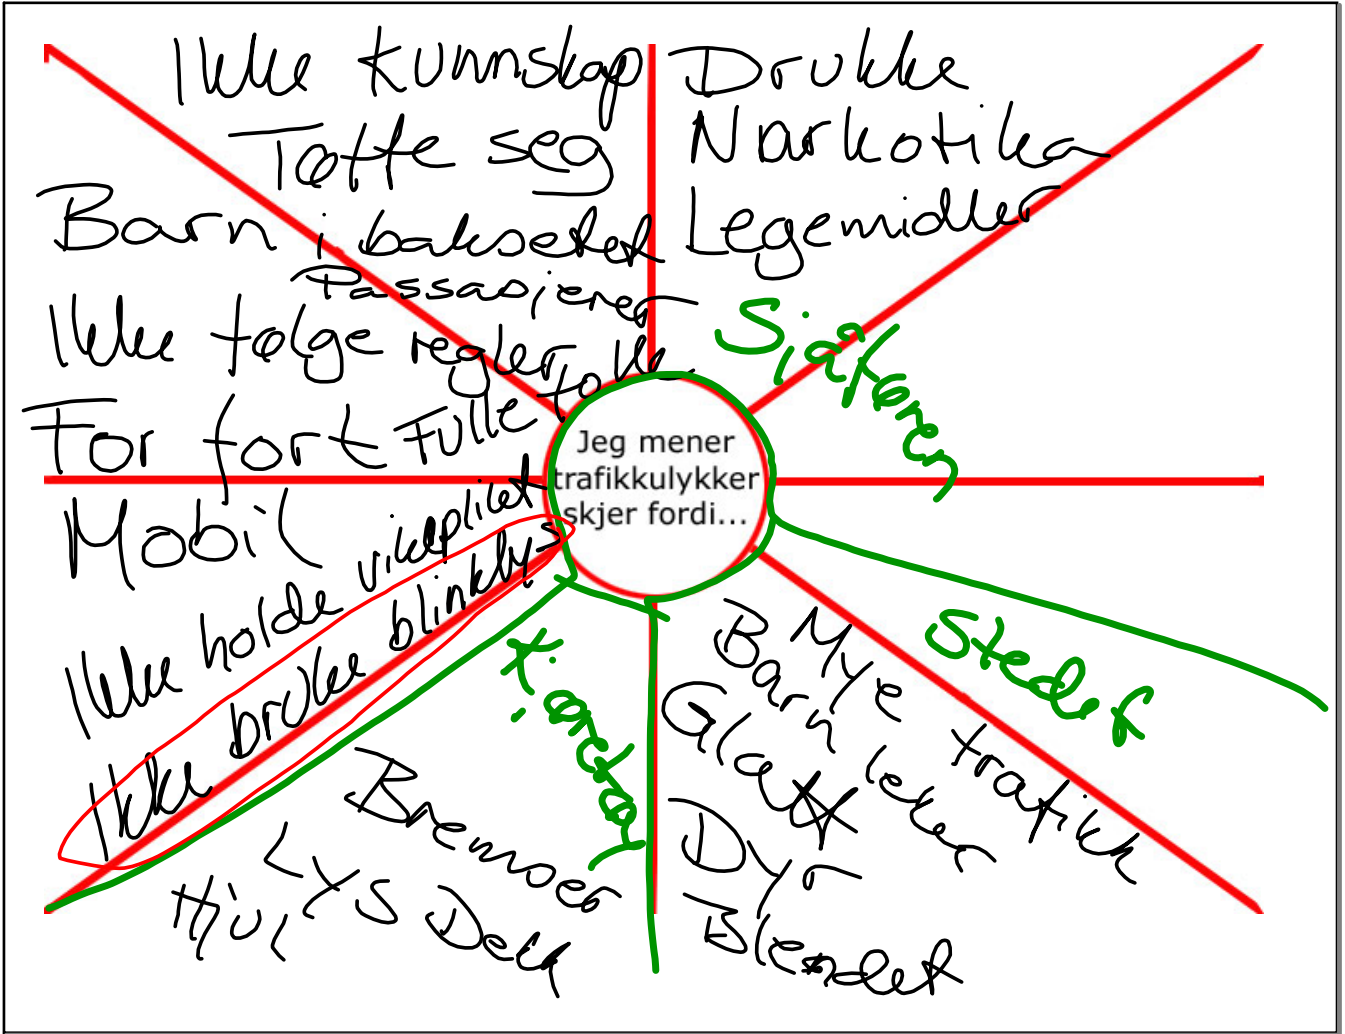 Ikke kunnskap
Tøffe seg
Barn i baksetet
Passasjerer
Ikke følge regler
For fort
Fulle folk
Mobil
Ikke holde vikeplikt
Ikke bruke blinklys
Drukke
Narkotika
Legemidler
Sjåføren
Jeg mener
trafikkulykker
skjer fordi...
Stedet
Mye trafikk
Barn leker
Glatt
Dyr
Blendet
Kjøretøy
Bremser
Lys
Dekk
Hjul